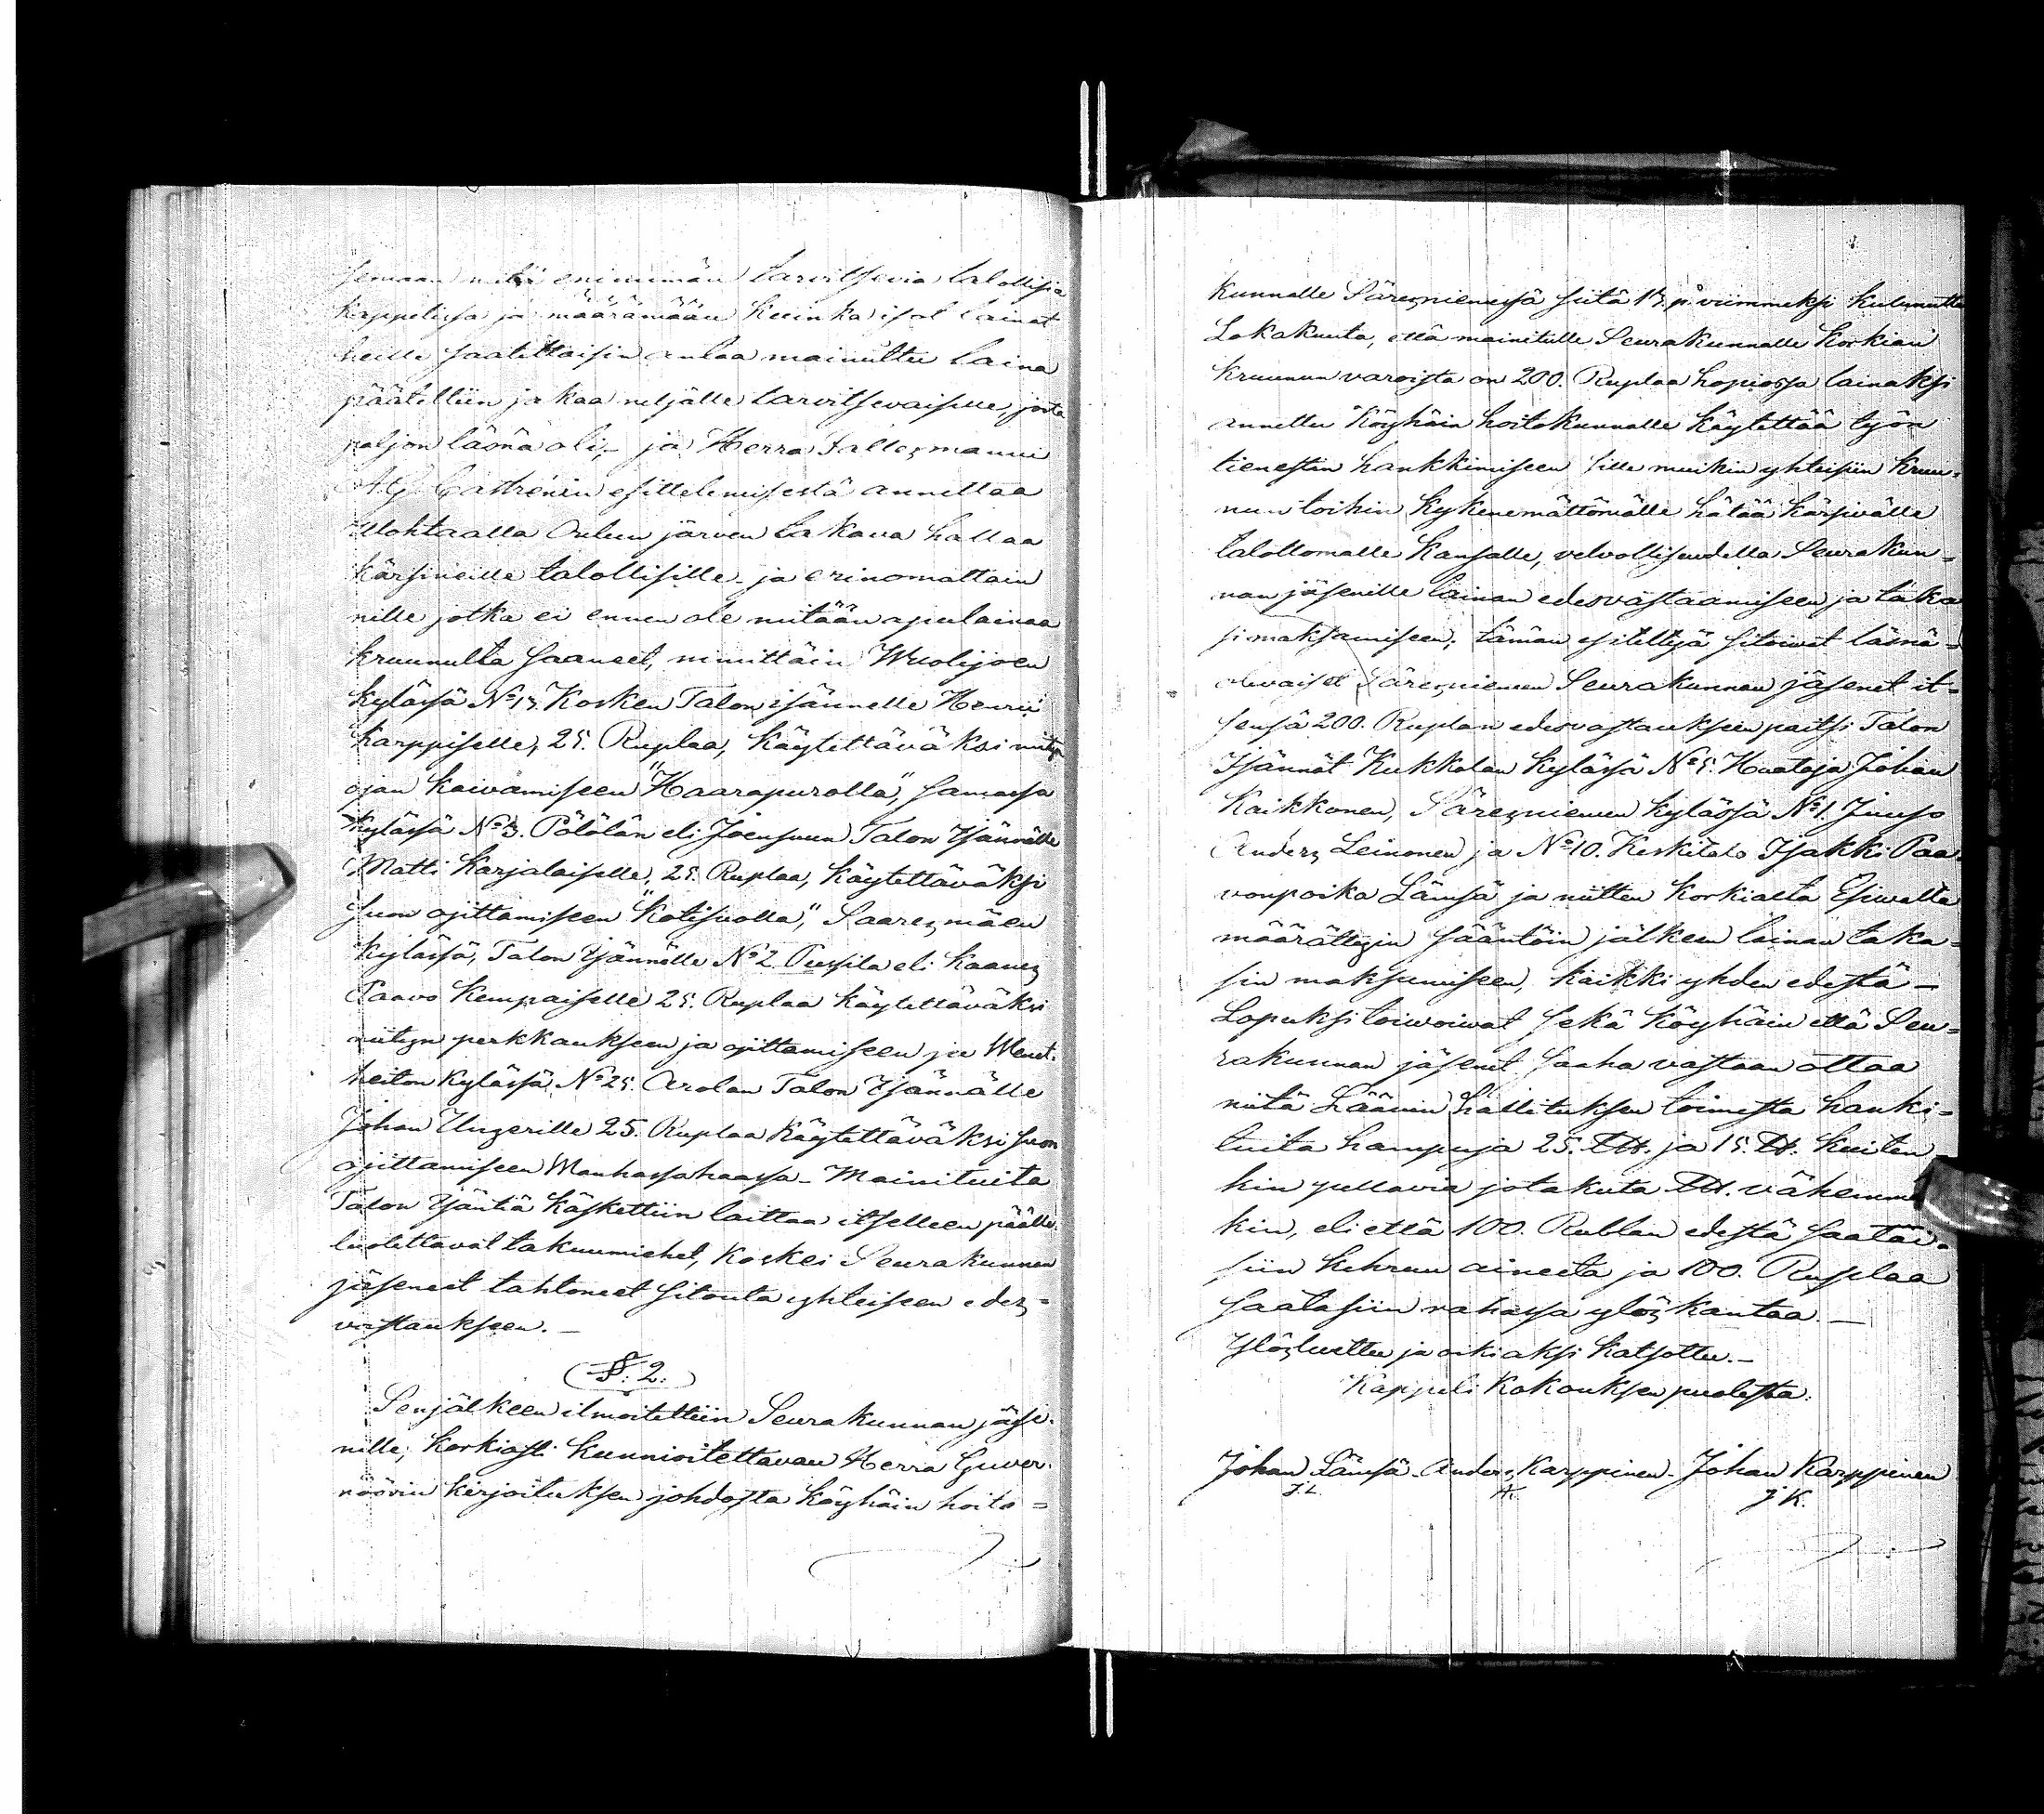 semaan mitä enimmän tarvitsevia talollisia
kappelissa ja määrämään kuinka isot lainat
heille saatettaisiin antaa mainittu laina
päätettiin jakaa neljälle tarvitsevaiselle, joita
paljon läsnä oli, – ja Herra Hallezmanni
A.G. Castrénin esittelemisestä annettaa
Oulun järven takava hallaa
kärsineille talollisille ja erinomattain
niille jotka ei ennen ole mitään apulainaa
kruunulta saaneet, nimittäin Wuolijoen
kylässä No 13. Kosken Talon isännelle Henrii
Karppiselle, 25. Ruplaa, käytettäväksi niityn
ojan kaivamiseen "Haarapurolla", samassa
kylässä No 3. Pölölän eli Joensuun Talon Isännälle
Matti Karjalaiselle, 25. Ruplaa, käytettäväksi
suon ojittamiseen "Kotisuolla", Saarezmäen
kylässä, Talon Isännälle No 2 Pussila eli Kaanez
Paavo Kempaiselle 25. Ruplaa käytettäväksi
niityn perkkaukseen ja ojittamiseen ja Wenet-
heiton kylässä No 25. Arolan Talon Isännälle
Johan Ungerille 25. Ruplaa käytettäväksi suon
ojittamiseen Manhassahaassa – Mainituita
Talon Isäntiä käskettiin laittaa itselleen päälle
luotettavat takuumiehet, koskei Seurakunnan
jäsenet tahtoneet sitouta yhteiseen edez=
vastaukseen. –
(§: 2:)
Senjälkeen ilmoitettiin Seurakunnan jäse-
nille, korkiasti kunnioitettavan Herra Guver-
nöörin kirjoituksen johdosta köyhäin hoito=
kunnalle Särezniemessä siitä 13. p. viimmeksi kulunutta
Lokakuuta, että mainitulle Seurakunnalle Korkian
kruunun varoista on 200. Ruplaa hopiassa lainaksi
annettu Köyhäin hoitokunnalle käytettää työn
tienestin hankkimiseen sille muihin yhteisiin kruu=
nun töihin kykenemättömälle hätää kärsivälle
talottomalle kansalle, velvollisuudella Seurakun=
nan jäsenille lainan edesvastaamiseen ja taka
si maksamiseen; tämän esitettyä sitoivat läsnä=
olevaiset Särezniemen Seurakunnan jäsenet it=
sensä 200. Ruplan edesvastaukseen paitsi Talon
Isännät Kukkolan kylässä No 5. Huotaja Johan
Kaikkonen, Särezniemen kylässä No 1. Juuso
Anderz Leinonen ja No 10. Keskitalo Isakki Paa-
vonpoika Lämsä ja niitten korkialta Esivalta
määrättyin sääntöin jälkeen lainan taka=
sin maksamiseen, kaikki yhden edestä –
Lopuksi toivoivat sekä köyhäin että Seu=
rakunnan jäsenet saaha vastaan ottaa
niitä Läänin hallituksen toimesta hanki=
tuita hamppuja 25. ℔. ja 15. ℔. kuiten
kin pellavia jotakuta ℔. vähemmä
kin, eli että 100. Rublan edestä saatai=
siin kehruu aineita ja 100. Ruplaa
saatasiin rahassa ylöz kantaa –
Ylözluettu ja oikiaksi katsottu. –
Kappeli Kokouksen puolesta:
Johan Lämsä – Anderz Karppinen – Johan Karppinen
J.L. A.K. J.K.